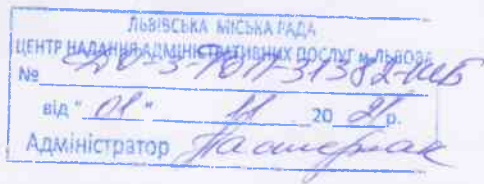 ЛЬВІВСЬКА МІСЬКА РАДА
ЦЕНТР НАДАННЯ АДМІНІСТРАТИВНИХ ПОСЛУГ м. ЛЬВОВА
№
від " 01 " 11 20 21 р.
Адміністратор